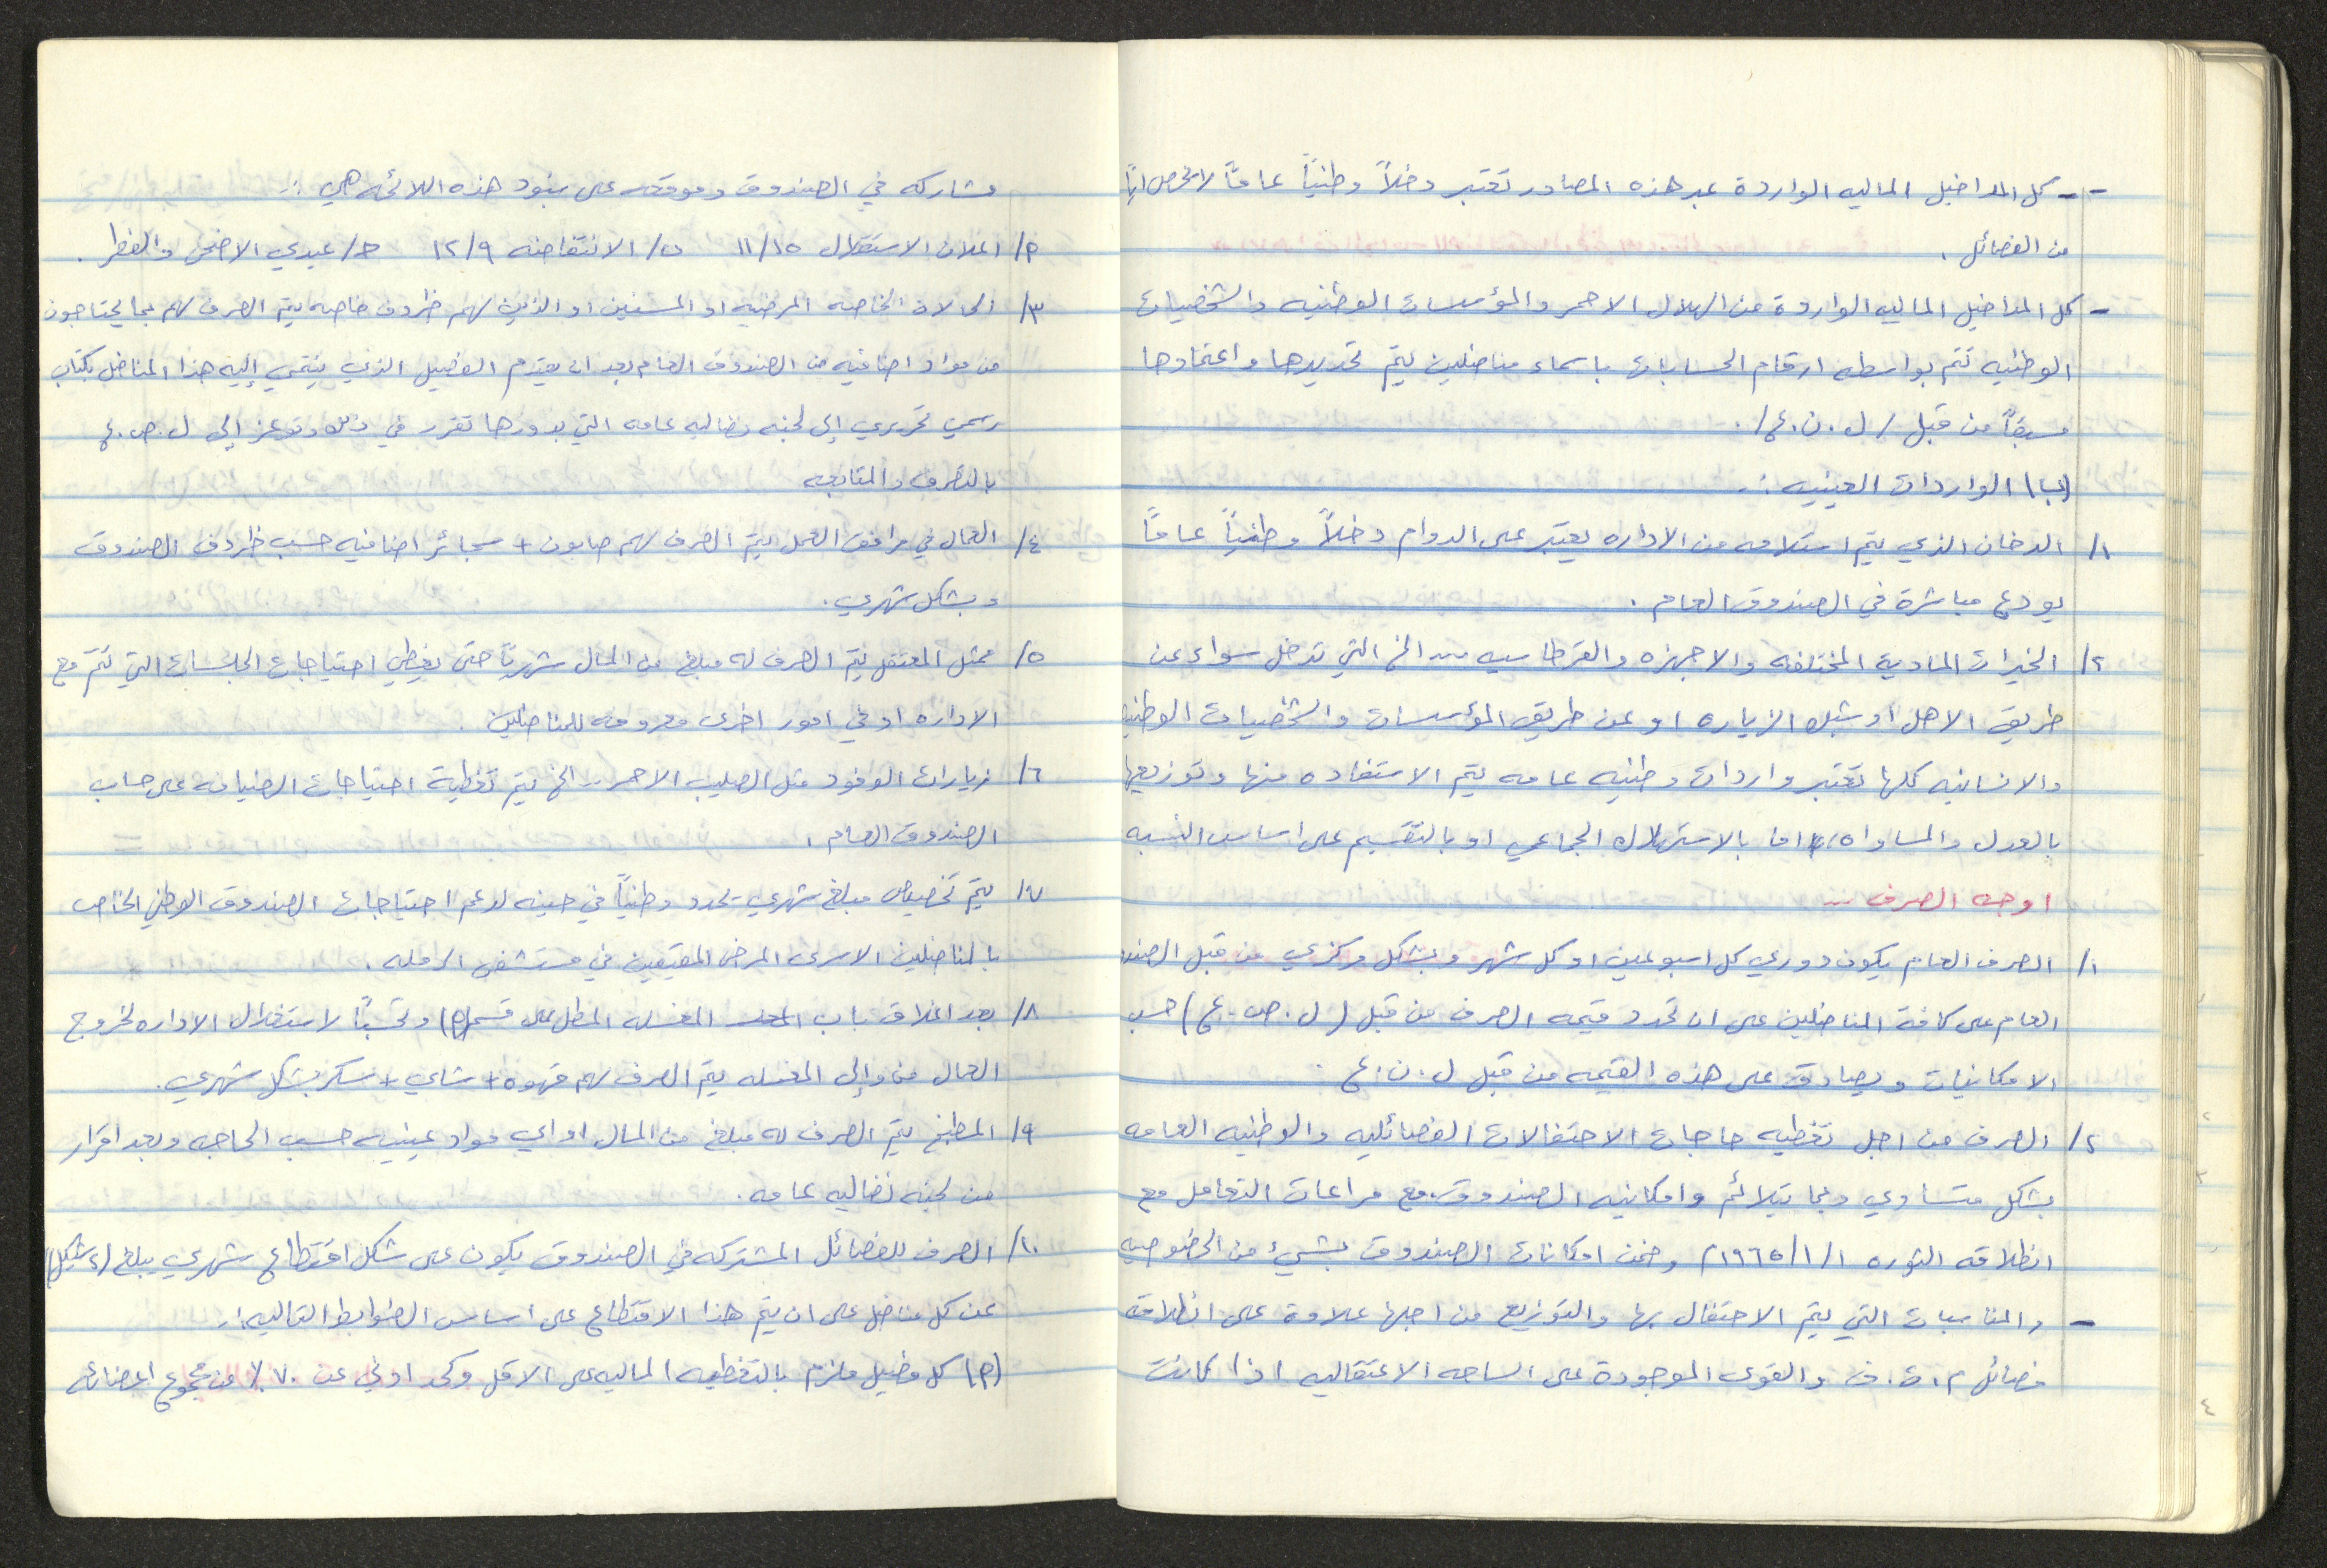 - كل المداخيل الماليه الواردة عبر هذه المصادر تعتبر دخلاً وطنياً عاماً لا تخص اياً
من الفصائل .
- كل المداخيل الماليه الواردة من الهلال الاحمر والمؤسسات الوطنيه والشخصيات
الوطنيه تتم بواسطه ارقام الحسابات باسماء مناضلين يتم تحديدها واعتمادها
مسبقاً من قبل / ل . ن . ع / .
(ب) الواردات العينيه :-
١/ الدخان الذي يتم استلامه من الاداره يعتبر على الدوام دخلاً وطنياً عاماً
يودع مباشرة في الصندوق العام .
٢/ الخيرات الماديه المختلفه والاجهزه والقرطاسيه ... الخ التي تدخل سواء عن
طريق الاهل او شبك الزياره او عن طريق المؤسسات والشخصيات الوطنيه
والانسانيه كلها تعتبر واردات وطنيه عامه يتم الاستفاده منها وتوزيعها
بالعدل والمساواه، اما بالاستهلاك الجماعي او بالتقسيم على اساس النسبه
اوجه الصرف :-
١/ الصرف العام يكون دوري كل اسبوعين او كل شهر وبشكل مركزي من قبل الصندوق
العام على كافة المناضلين على ان تحدد قيمه الصرف من قبل (ل . ص . ع) حسب
الامكانيات ويصادق على هذه القيمه من قبل ل . ن . ع .
٢/ الصرف من اجل تغطيه حاجات الاحتفالات الفصائليه والوطنيه العامه
بشكل متساوي وبما يتلائم وامكانيه الصندوق، مع مراعات التعامل مع
انطلاقه الثوره ١/١/١٩٦٥) وضمن امكانات الصندوق بشيء من الخصوصيه
- والمناسبات التي يتم الاحتفال بها والتوزيع من اجلها علاوة على انطلاقة
فصائل م . ت . ف والقوى الموجودة على الساحه الاعتقاليه اذا كانت
مشاركه في الصندوق وموقعه على بنود هذه اللائحه هي :-
٢/ اعلان الاستقلال ١١/١٥ ب/ الانتفاضه ١٢/٩ ج/ عيدي الاضحى والفطر .
٣/ الحالات الخاصه المرضيه او المسنين او الذين لهم ظروف خاصه يتم الصرف لهم بما يحتاجون
من مواد اضافيه من الصندوق العام بعد ان يقدم الفصيل الذي ينتمي إليه هذا المناضل بكتاب
رسمي تحريري إلى لجنه نضاليه عامه التي بدورها تقرر في ذلك وتوعز إلى ل . ص . ع
بالتصرف والمتابعه
٤/ العمال في مرافق العمل يتم الصرف لهم صابون + سجائر اضافيه حسب ظروف الصندوق
وبشكل شهري .
٥/ ممثل المعتقل يتم الصرف له مبلغ من المال شهرياً حتى يغطي احتياجات الجلسات التي تتم مع
الاداره او في امور اخرى معروفه للمناضلين .
٦/ زيارات الوفود مثل الصليب الاحمر .. الخ يتم تغطية احتياجات الضيافه على حساب
الصندوق العام .
٧/ يتم تخصيص مبلغ شهري يحدد وطنياً في حينه لدعم احتياجات الصندوق الوطني الخاص
بالمناضلين الاسرى المرضى المقيمين في مستشفى الرمله .
٨/ بعد اغلاق باب المغسله المطل على قسم (٩) وتحسباً لاستغلال الاداره لخروج
العمال من وإلى المغسله يتم الصرف لهم قهوه + شاي + سكر بشكل شهري .
٩/ المطبخ يتم الصرف له مبلغ من المال او اي مواد عينيه حسب الحاجه وبعد اقرار
من لجنه نضاليه عامه .
١٠/ الصرف للفصائل المشتركه في الصندوق يكون على شكل اقتطاع شهري يبلغ (٤ شيكل)
عن كل مناضل على ان يتم هذا الاقتطاع على اساس الضوابط التاليه :-
(٢) كل فصيل ملزم بالتغطيه الماليه على الاقل وكحد ادنى عن ٧٠ ٪ من مجموع اعضائه